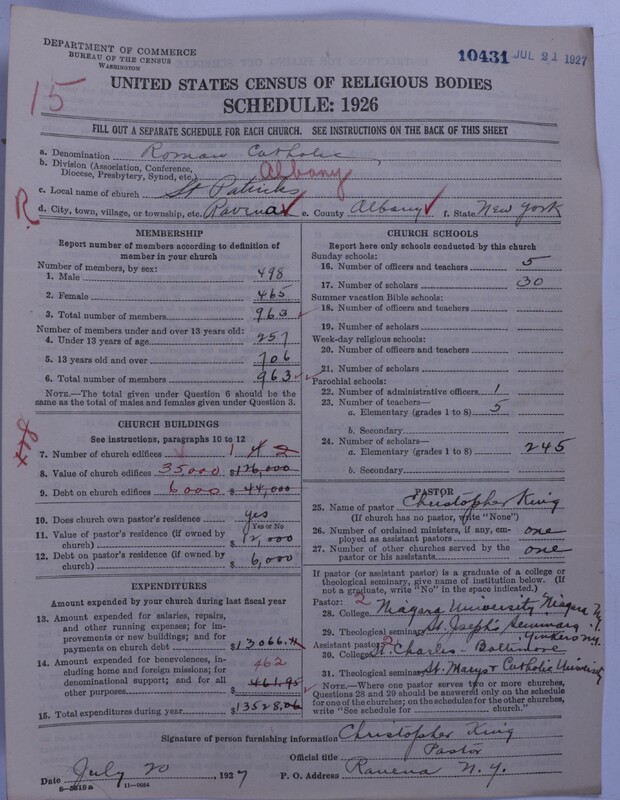 DEPARTMENT OF COMMERCE
BUREAU OF THE CENSUS
WASHINGTON
10431 JUL 21 1927
15
UNITED STATES CENSUS OF RELIGIOUS BODIES
SCHEDULE: 1926
FILL OUT A SEPARATE SCHEDULE FOR EACH CHURCH. SEE INSTRUCTIONS ON THE BACK OF THIS SHEET
a. Denomination Roman Catholic
b. Division (Association, Conference, Diocese, Presbytery, Synod, etc.) Albany
c. Local name of church St Patricks
R
d. City, town, village, or township, etc. Ravena e. County Albany f. State New York
MEMBERSHIP
Report number of members according to definition of member in your church
Number of members, by sex:
1. Male 498
2. Female 465
3. Total number of members 963
Number of members under and over 13 years old:
4. Under 13 years of age 257
5. 13 years old and over 706
6. Total number of members 963
NOTE.—The total given under Question 6 should be the same as the total of males and females given under Question 3.
CHURCH BUILDINGS
See instructions, paragraphs 10 to 12
7. Number of church edifices 1 4 2
8. Value of church edifices 35,000 $126,000
9. Debt on church edifices 6000 $44,000
10. Does church own pastor's residence yes
Yes or No
11. Value of pastor's residence (if owned by church) $12,000
12. Debt on pastor's residence (if owned by church) $6,000
EXPENDITURES
Amount expended by your church during last fiscal year
13. Amount expended for salaries, repairs, and other running expenses; for improvements or new buildings; and for payments on church debt $13066.11
14. Amount expended for benevolences, including home and foreign missions; for denominational support; and for all other purposes 462 $461.95
15. Total expenditures during year $13528.06
CHURCH SCHOOLS
Report here only schools conducted by this church
Sunday schools:
16. Number of officers and teachers 5
17. Number of scholars 30
Summer vacation Bible schools:
18. Number of officers and teachers
19. Number of scholars
Week-day religious schools:
20. Number of officers and teachers
21. Number of scholars
Parochial schools:
22. Number of administrative officers 1
23. Number of teachers—
a. Elementary (grades 1 to 8) 5
b. Secondary
24. Number of scholars—
a. Elementary (grades 1 to 8) 245
b. Secondary
PASTOR
25. Name of pastor Christopher King
(If church has no pastor, write "None")
26. Number of ordained ministers, if any, employed as assistant pastors one
27. Number of other churches served by the pastor or his assistants one
If pastor (or assistant pastor) is a graduate of a college or theological seminary, give name of institution below. (If not a graduate, write "No" in the space indicated.)
Pastor: 2
28. College Niagara University, Niagara N.Y.
29. Theological seminary St. Joseph's Seminary Yonkers N.Y.
Assistant pastor: 2
30. College St. Charles - Baltimore
31. Theological seminary St. Marys & Catholic University
NOTE.—Where one pastor serves two or more churches, Questions 28 and 29 should be answered only on the schedule for one of the churches; on the schedules for the other churches, write "See schedule for church."
Signature of person furnishing information Christopher King
Official title Pastor
Date July 20, 1927 P. O. Address Ravena N.Y.
6—3518a 11—9064